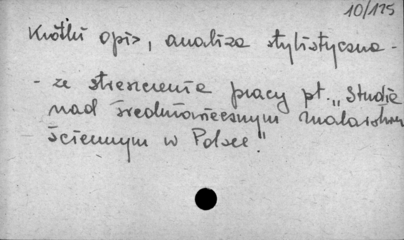 10/125
Krótki opis, analiza stylistyczna -
- ze streszczenia pracy pt. „Studia
nad średniowiecznym malarstwem
ściennym w Polsce."